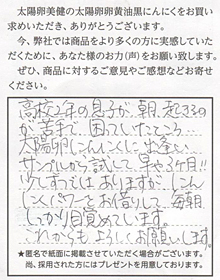 太陽卵美健の太陽卵卵黄油黒にんにくをお買い
求めいただき、ありがとうございます。
今、弊社では商品をより多くの方に実感していた
だくために、あなた様のお力(声)をお願い致します。
ぜひ、商品に対するご意見やご感想などお寄せ
ください。
高校2年の息子が、朝、起きるの
が苦手で、困ってしたところ、
太陽卵にんにくに出会い、
サンプルから試して、早や3ヶ月!!
少しずつではありますが、にん
にくパワーをお借りして、毎朝
しっかり目覚めています。
これからもよろしくお願いします。
★匿名で紙面に掲載させていただく場合がございます。
尚、採用された方にはプレゼントを用意しております。